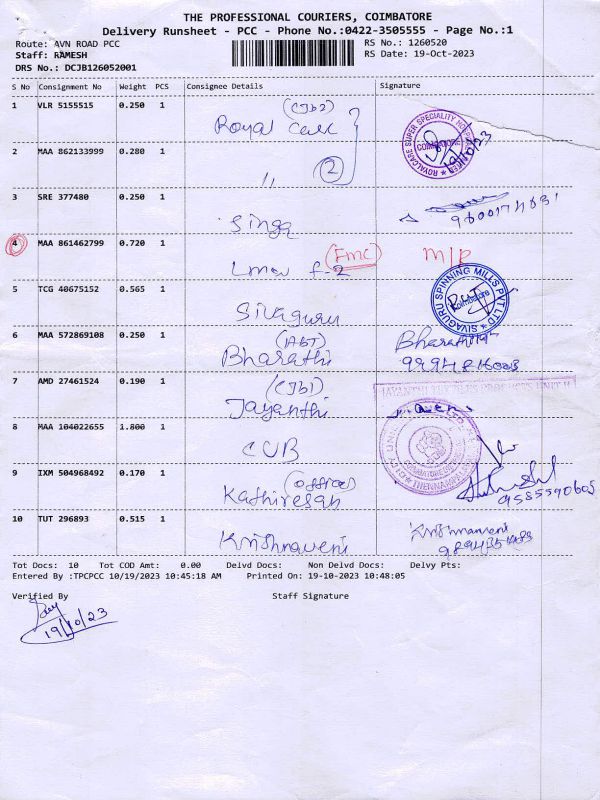 THE PROFESSIONAL COURIERS, COIMBATORE
Delivery Runsheet - PCC - Phone No.:0422-3505555 - Page No.:1
Route: AVN ROAD PCC RS No.: 1260520
Staff: RAMESH RS Date: 19-Oct-2023
DRS No.: DCJB126052001
S No Consignment No Weight PCS Consignee Details Signature
1 VLR 5155515 0.250 1 (CJB2)
Royal Care
2 MAA 862133999 0.280 1
" 2
ROYALCARE SUPER SPECIALITY
COIMBATORE
19/10/23
3 SRE 377480 0.250 1
Singa
4 MAA 861462799 0.720 1 (FMC) M/R
F-2
5 TCG 40675152 0.565 1
Sivaguru
SIVAGURU SPINNING MILLS PVT LTD
Coimbatore
6 MAA 572869108 0.250 1 (ABT)
Bharathi Bharathi
7 AMD 27461524 0.190 1 (CJB1)
Jayanthi
8 MAA 104022655 1.800 1
CUB
9 IXM 504968492 0.170 1 (office)
Kathiresan
9585590605
10 TUT 296893 0.515 1
Krishnaveni Krishnaveni
Tot Docs: 10 Tot COD Amt: 0.00 Delvd Docs: Non Delvd Docs: Delvy Pts:
Entered By :TPCPCC 10/19/2023 10:45:18 AM Printed On: 19-10-2023 10:48:05
Verified By Staff Signature
19/10/23